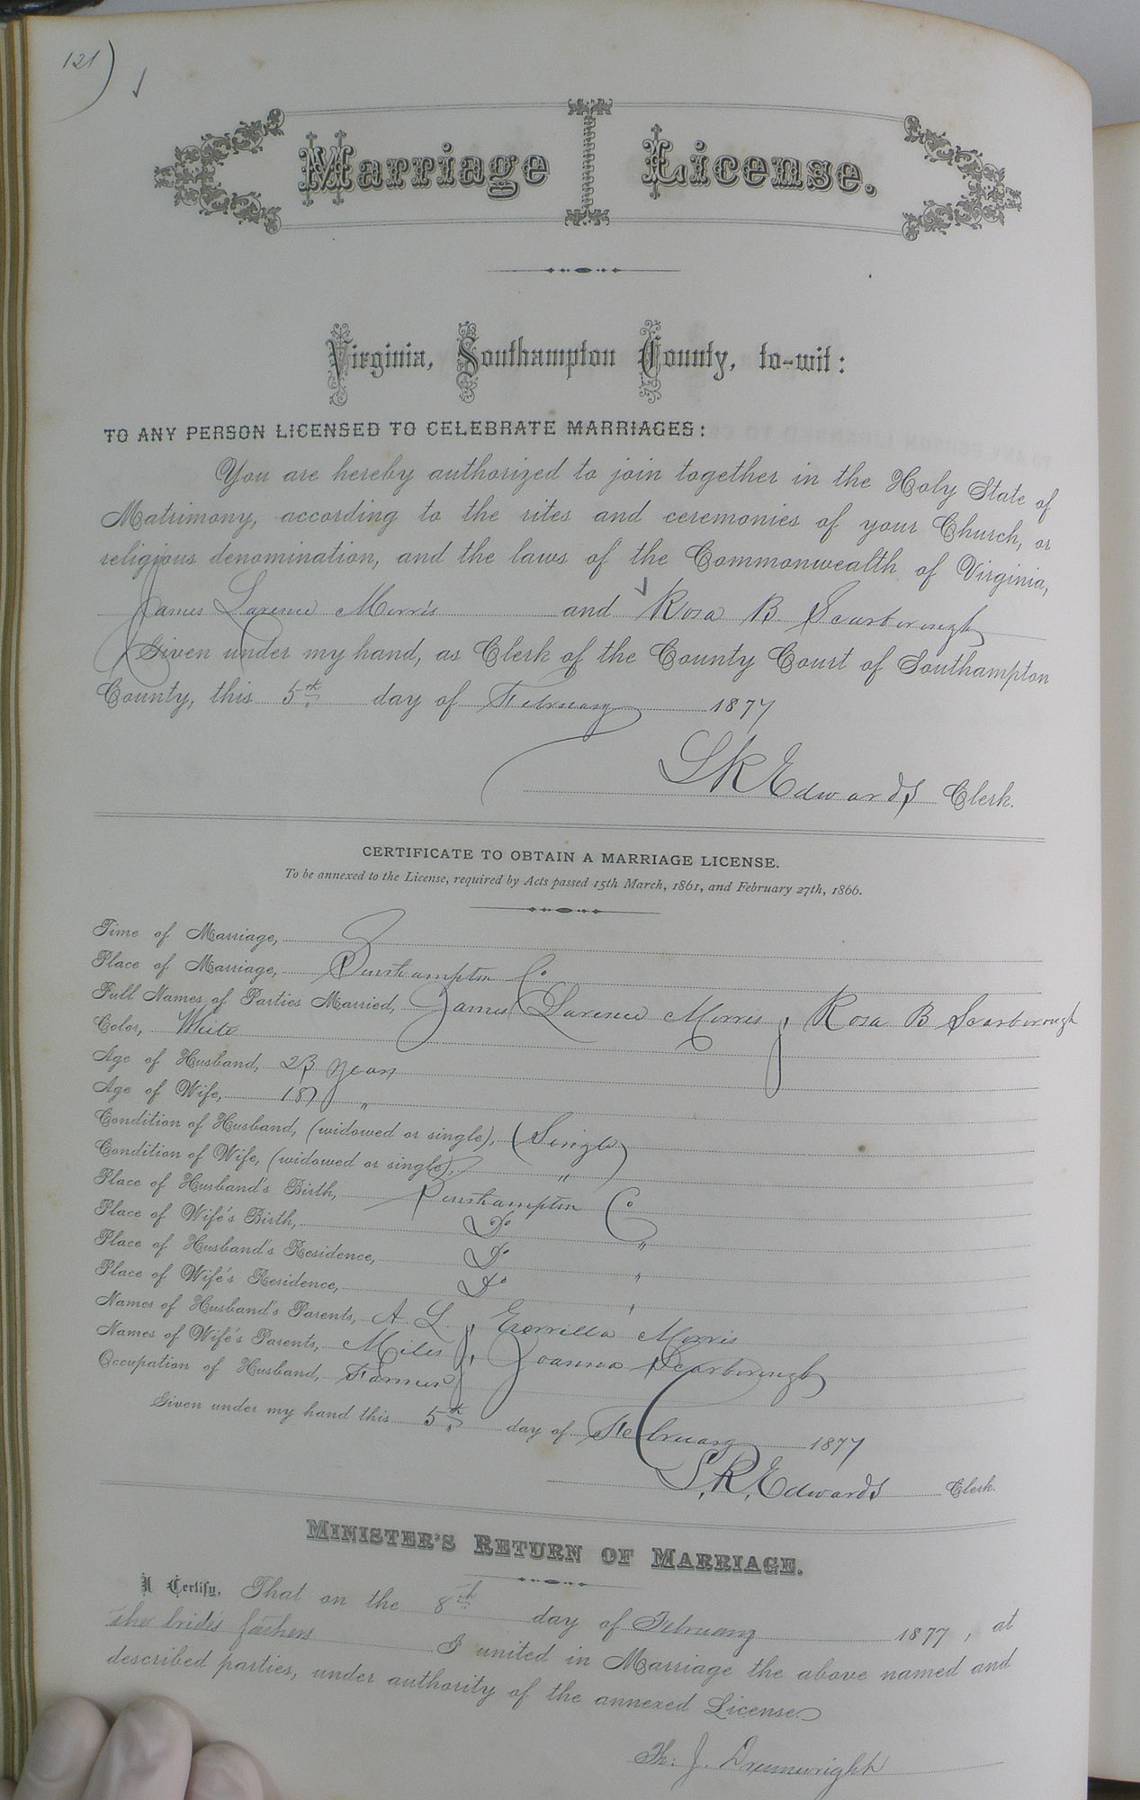 121)
Marriage License.
Virginia, Southampton County, to-wit:
TO ANY PERSON LICENSED TO CELEBRATE MARRIAGES:
You are hereby authorized to join together in the Holy State of
Matrimony, according to the rites and ceremonies of your Church, or
religious denomination, and the laws of the Commonwealth of Virginia,
James Larence Morris and Rosa B. Scarborough
Given under my hand, as Clerk of the County Court of Southampton
County, this 5th day of February 1877
L R Edwards Clerk.
CERTIFICATE TO OBTAIN A MARRIAGE LICENSE.
To be annexed to the License, required by Acts passed 15th March, 1861, and February 27th, 1866.
Time of Marriage,
Place of Marriage, Southampton Co
Full Names of Parties Married, James Larence Morris, Rosa B Scarborough
Color, White
Age of Husband, 23 years
Age of Wife, 18 "
Condition of Husband, (widowed or single), Single
Condition of Wife, (widowed or single), "
Place of Husband's Birth, Southampton Co
Place of Wife's Birth, Do "
Place of Husband's Residence, Do "
Place of Wife's Residence, Do "
Names of Husband's Parents, A. L., Morris
Names of Wife's Parents, Miles, Joanna Scarborough
Occupation of Husband, Farmer
Given under my hand this 5th day of February 1877
L. R. Edwards Clerk.
MINISTER'S RETURN OF MARRIAGE.
I Certify, That on the 8th day of February 1877, at
the brides fathers I united in Marriage the above named and
described parties, under authority of the annexed License.
Th: J. Drumwright